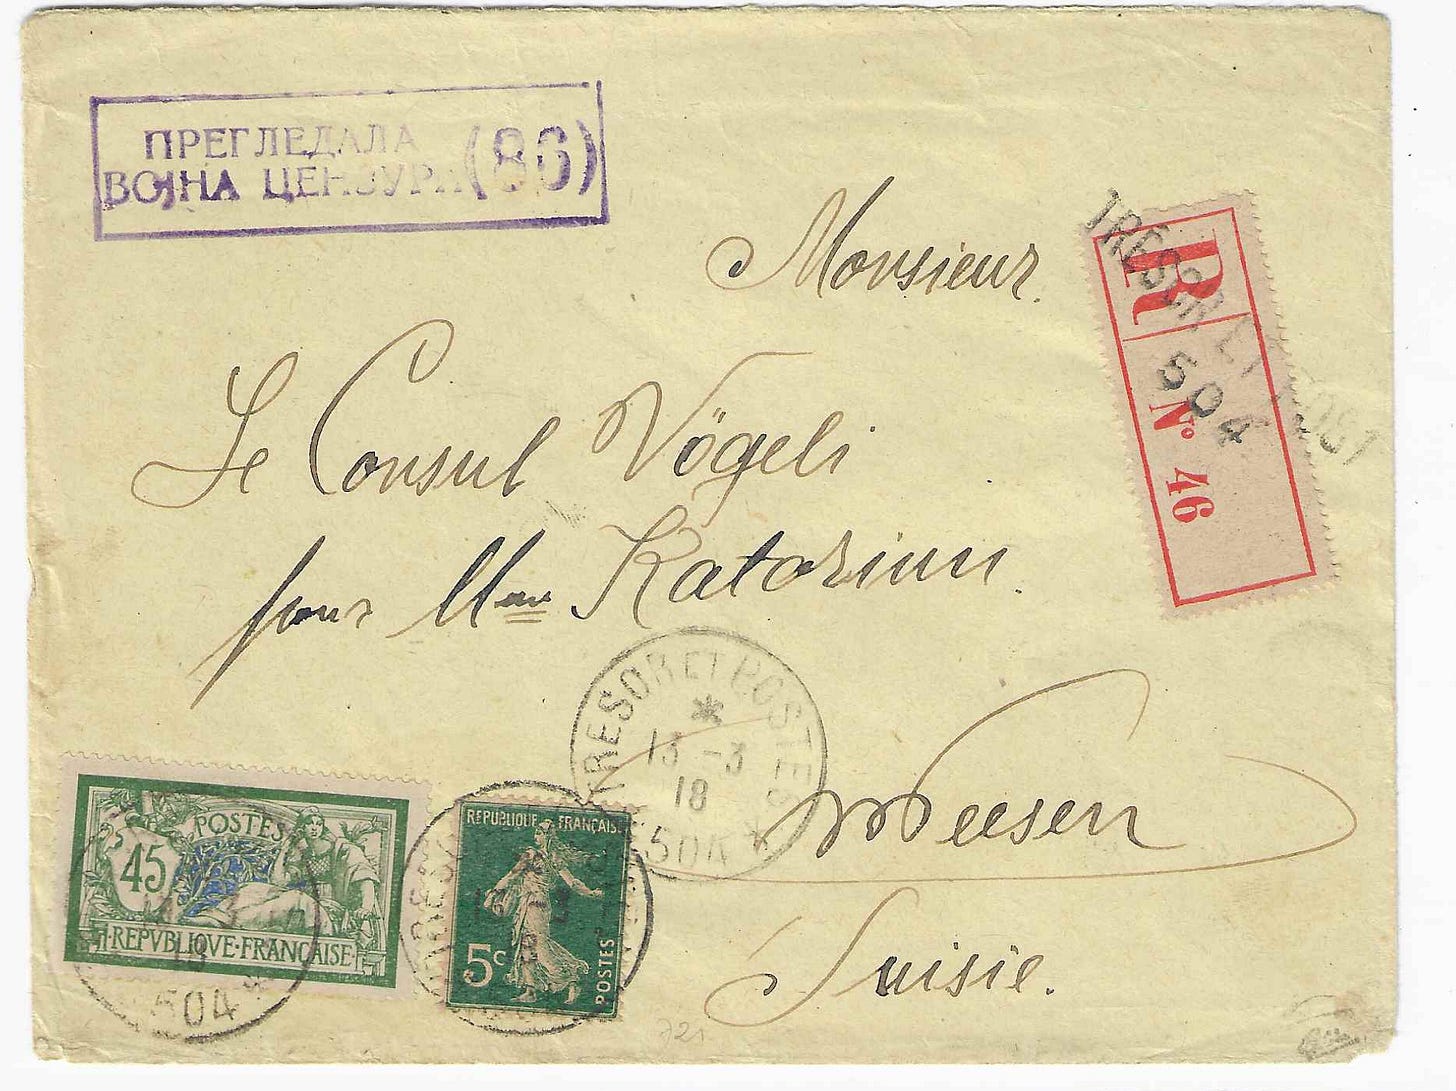 ПРЕГЛЕДАЛА
ВОЈНА ЦЕНЗУРА (86)
Monsieur.
Le Consul Vögeli
pour Mme Katorinni
Weesen
Suisie.
R
N. 46
TRESOR ET POSTES
504
TRESOR ET POSTES
*
13 -3
18
504 *
POSTES
45
REPVBLIQVE·FRANÇAISE
18
504 *
REPUBLIQUE FRANÇAISE
5c
POSTES
721